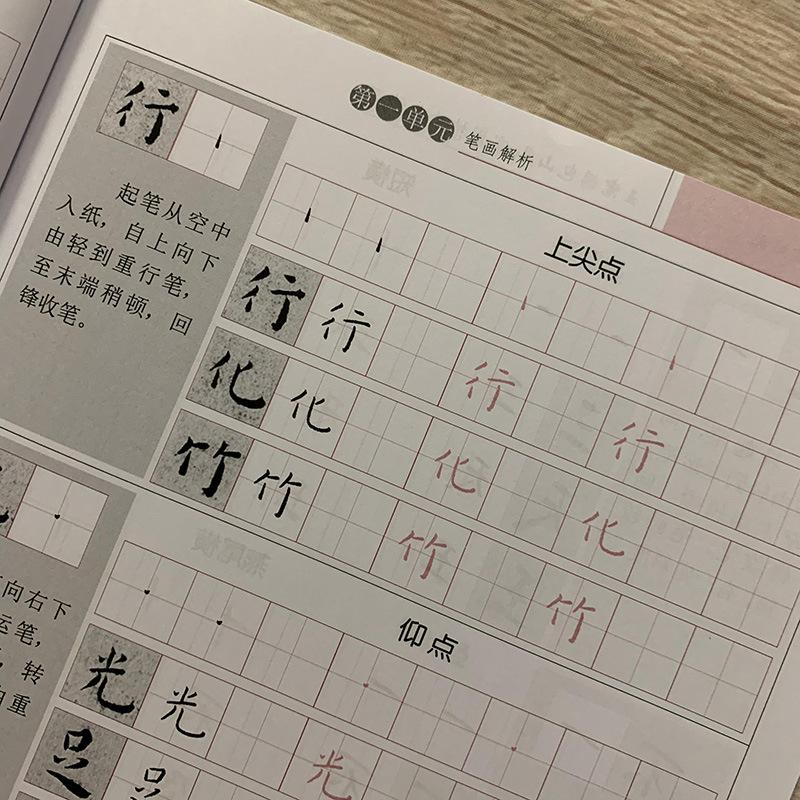 第一单元 笔画解析
行
起笔从空中
入纸，自上向下
由轻到重行笔，
至末端稍顿，回
锋收笔。
上尖点
行 行 行 行
化 化 化 化
竹 竹 竹 竹
向右下
运笔，
转
重
仰点
光 光 光
足 足